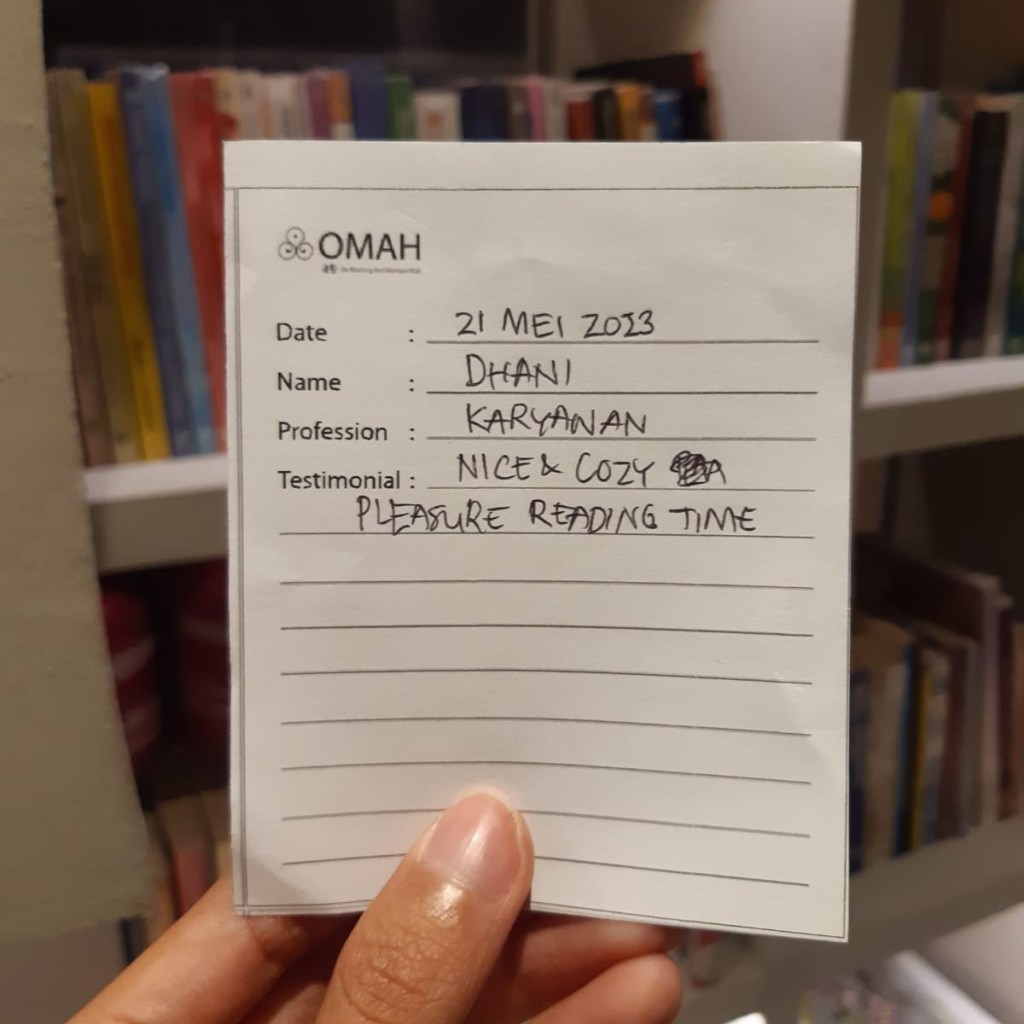 OMAH
Date : 21 MEI 2023
Name : DHANI
Profession : KARYANAN
Testimonial : NICE & COZY A
PLEASURE READING TIME